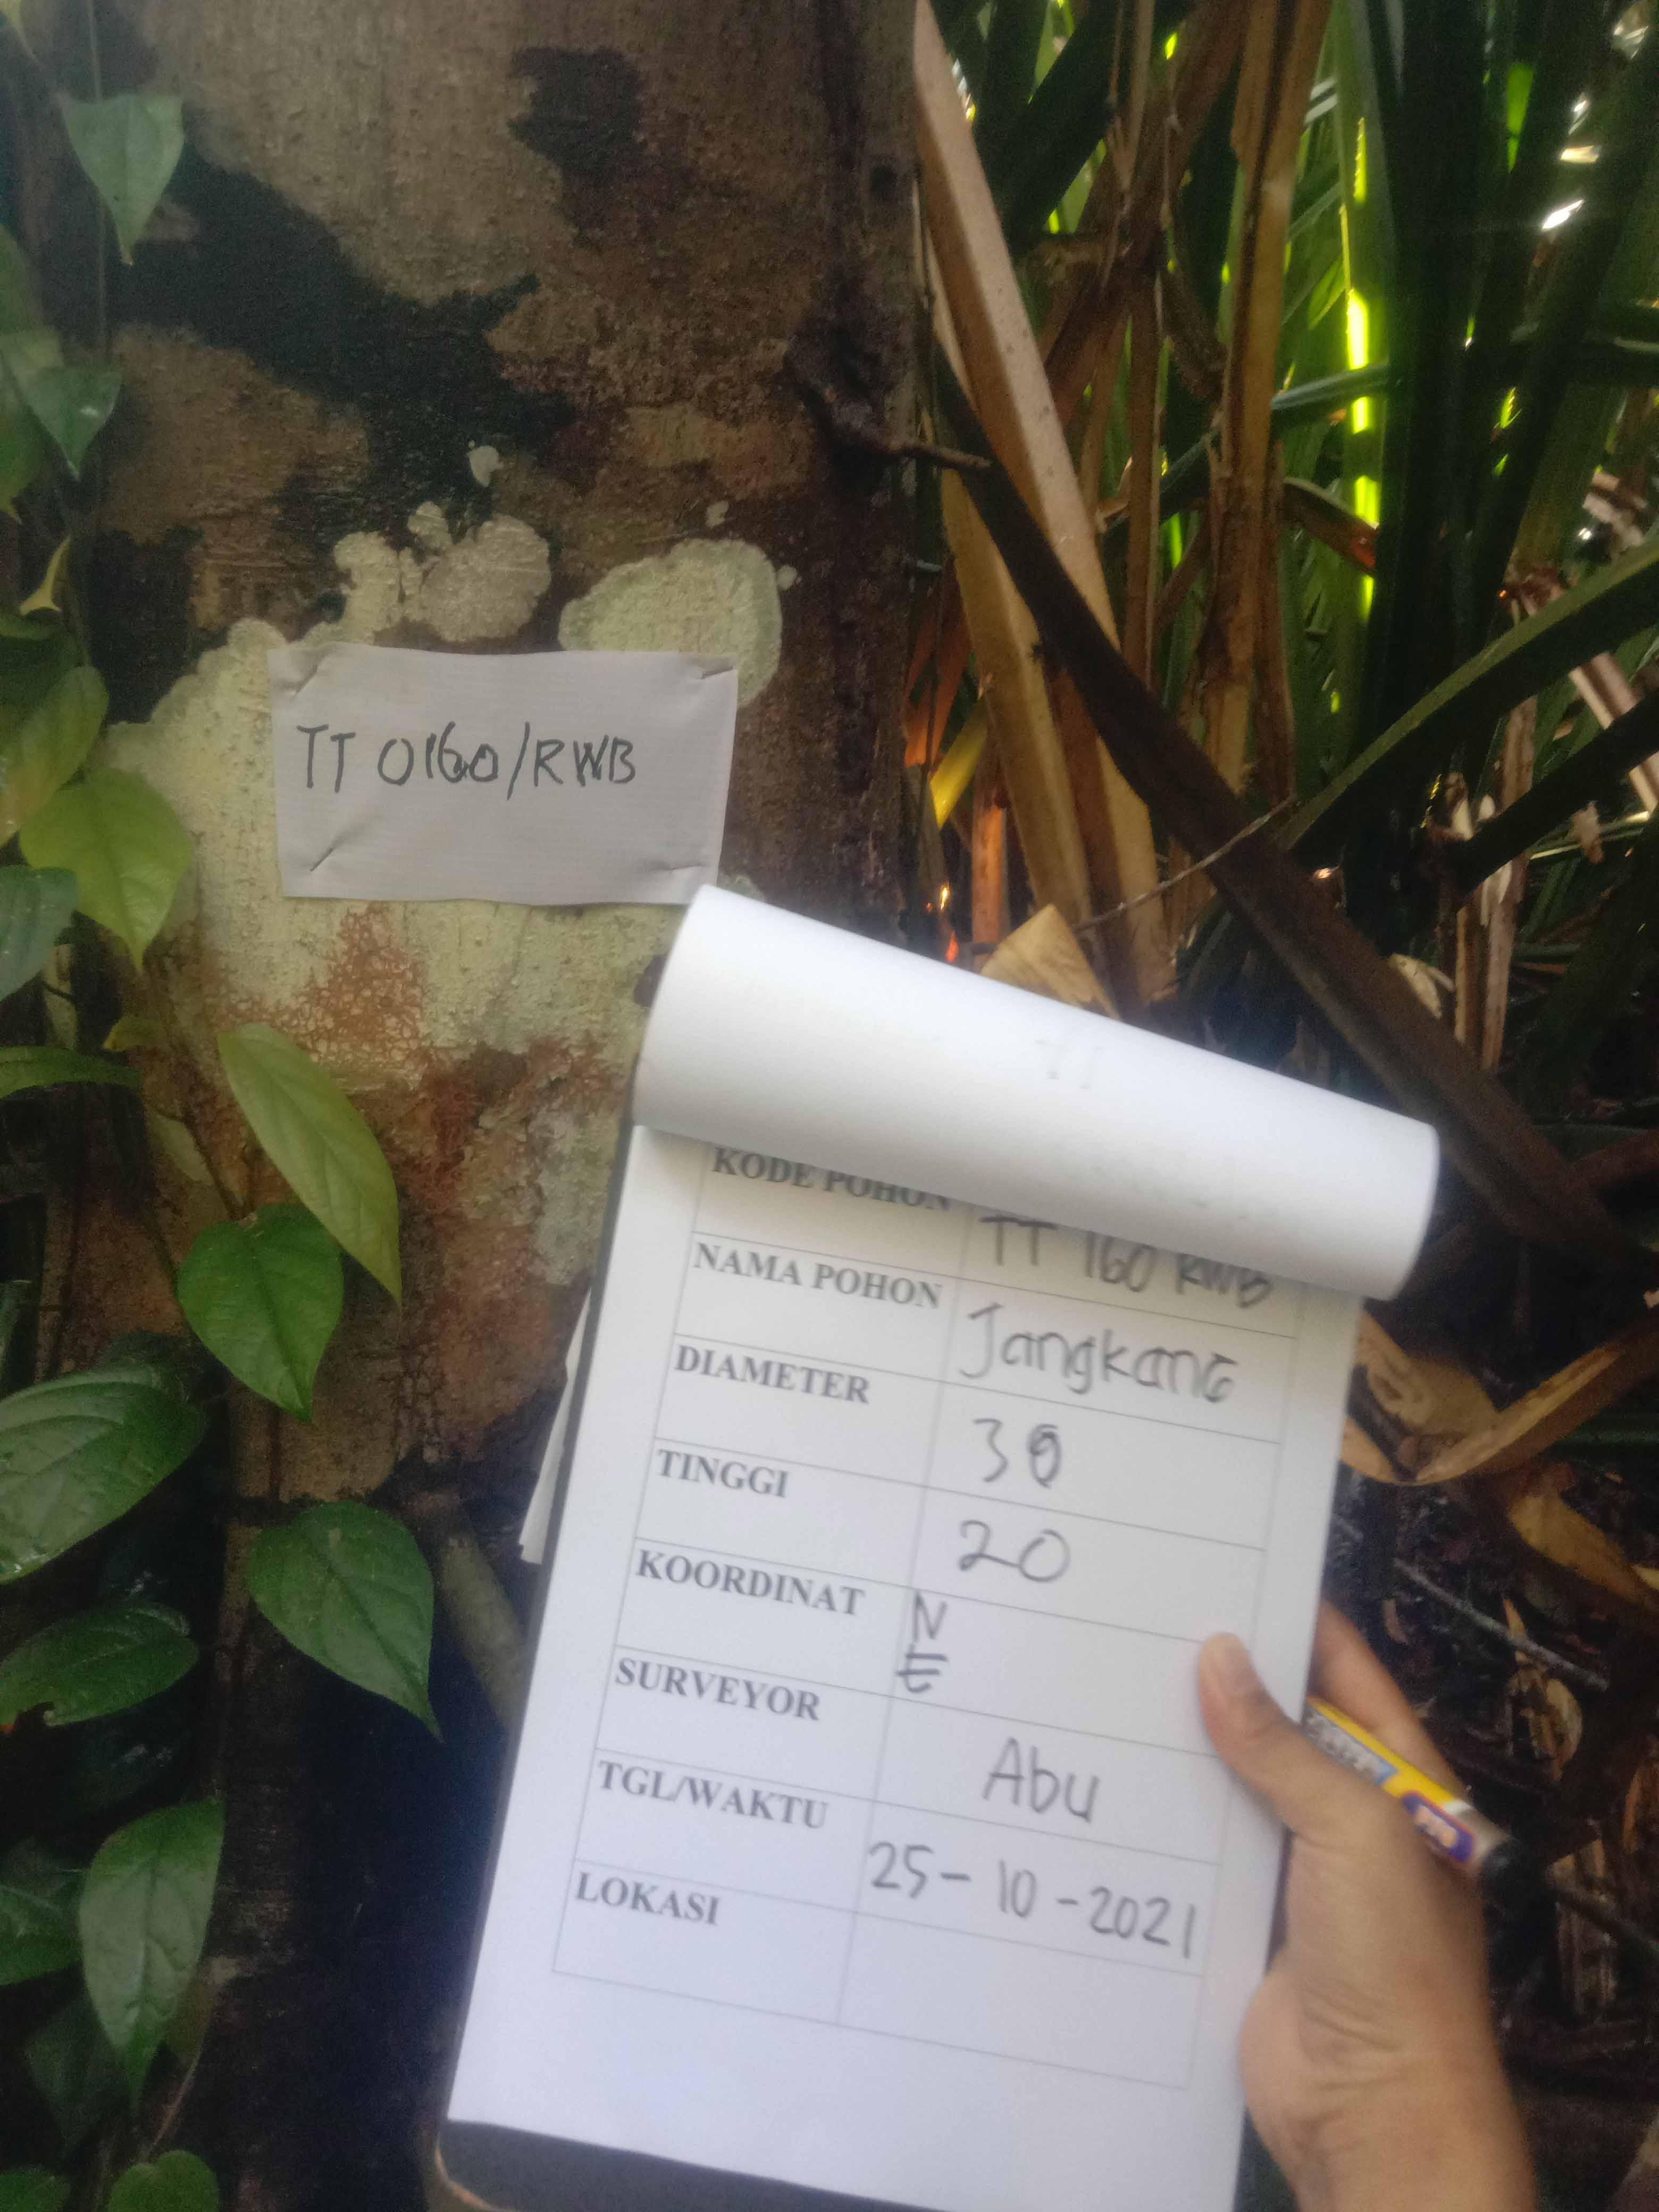 TT 0160/RWB
KODE POHON TT 160 RWB
NAMA POHON Jangkang
DIAMETER
TINGGI 20
KOORDINAT N
E
SURVEYOR Abu
TGL/WAKTU 25-10-2021
LOKASI